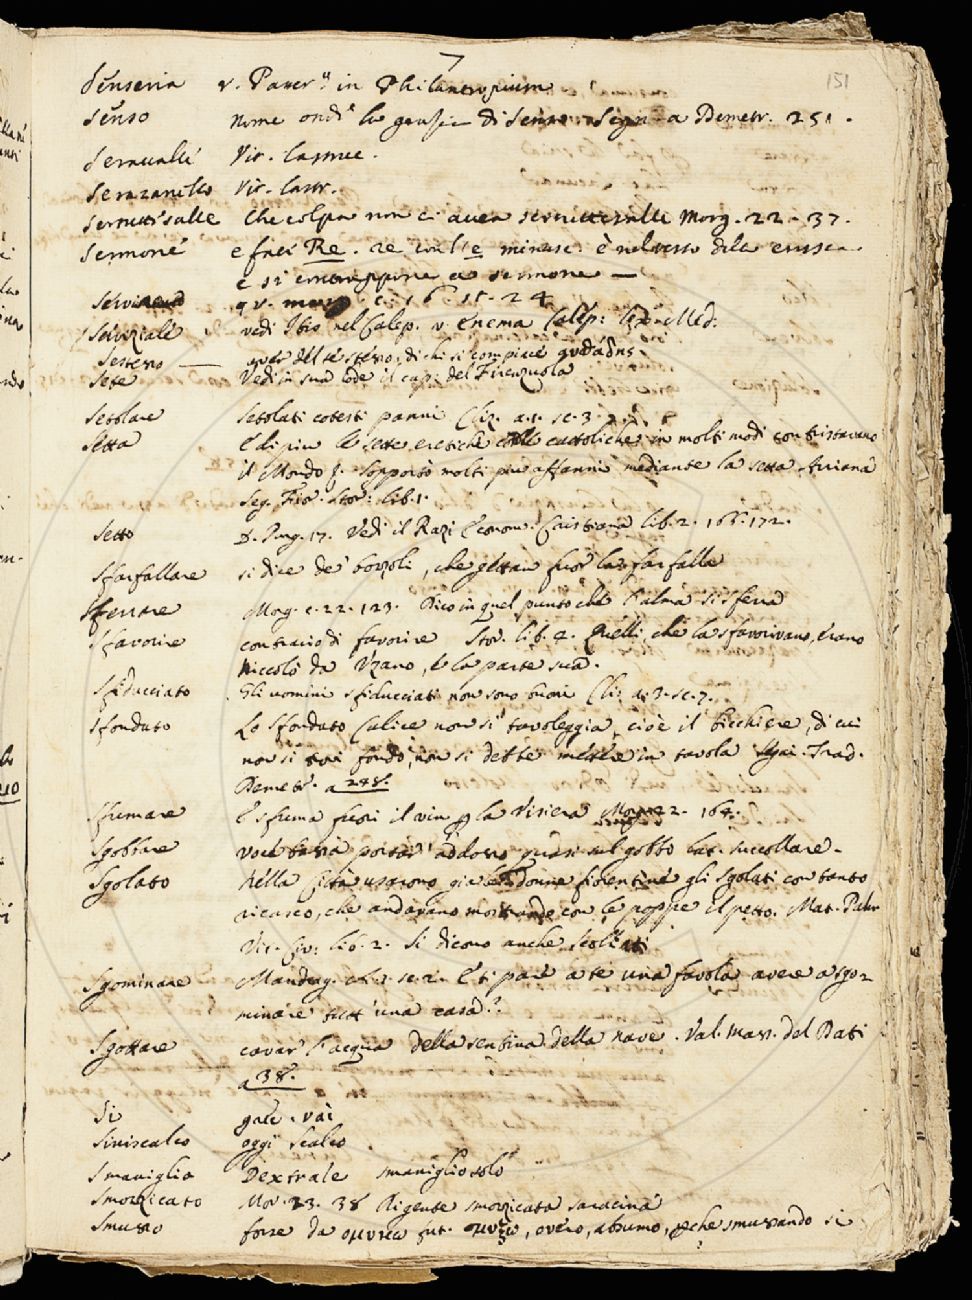 151
Senseria v. Paner.ii in Philantropium
Senso nome ond' la gausia di Senso. Segni a Demetr. 251.
Seravalle Vit. Castruc.
Serazanello Vit. Castr.
Serrettisalle Che colpa non ci avea serrettesalle Morg. 22. 37.
Sermone e feci Re. re coll' e minusc. è nel verso della
e si contrappone a sermone —
qv. c. 16 15. 24
Serviziale vedi Ibis nel Calep. v. Enema Calep: Lex. Med:
Sestesso over del se stesso, di chi si compiace
Sete Vedi in sua lode il cap: del Firenzuola
Setolare Setolati cotesti panni Cliz. a. 1. sc. 3.
Setta E di piu le sette eretiche colle cattoliche in molti modi contristavano
il Mondo &. Sopportò molti piu affanni mediante la setta Arriana
Seg. Fior. Stor: lib. 1.
Setto D. Purg. 17. Vedi il Razi Econom. Cristiana lib. 2. 166. 172.
Sfarfallare si dice de' bozzoli, che gettan fuor la farfalla
Sferrare Morg. c. 22. 123. Dico in quel punto che l'alma si sferra
Sfavorire contrario di favorire Sto. lib. 4. Quelli, che la sfavorivano, erano
Niccolò da Uzano, e la parte sua.
Sfiducciato Gli uomini sfiducciati non sono buoni Cli: a. 3. sc. 7.
Sfondato Lo sfondato Calice non si tavoleggia, cioè il bicchiere, di cui
non si fondo, non si debbe mettere in tavola Segni Trad.
Demetr. a 248.
Sfumare E sfuma fuori il vin p la visiera Morg. 22. 164.
Sgobbare voce bassa portar' addosso quasi sul gobbo lat. succollare.
Sgolato Nella Città usarono gia le donne fiorentine gli sgolati con tanto
ricasco, che andavano mostrando con le poppe il petto. Mat. Palm
Vit. Civ: lib. 2. Si dicono anche scollati
Sgominare Mandrag. at. 1. sc. 2. E ti pare a te una favola avere a sgo-
minare tutt' una casa?
Sgottare cavar l'acqua della sentina della nave. Val. Mass. del Dati
a 38.
Si gale. vai
Siniscalco oggi scalco
Smaniglia Dextrale smanigliosolo
Smozzicato Mor. 23. 38 Rigente smozzicata saracina
Smusso forse da ομυσσω fut. ομυξω, overo, absumo, pche smussando si